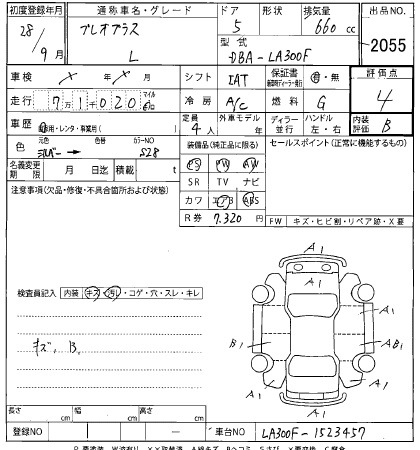 初度登録年月 通称車名・グレード ドア 形状 排気量 出品NO.
28/9月 プレオプラス L 5 660cc 2055
型式 DBA-LA300F
車検 ×年 ×月 シフト IAT 保証書 有・無 評価点
走行 7万1020 マイル km 冷房 A/C 燃料 G 4
車歴 自家用・レンタ・事業用( ) 定員 4人 外車モデル 年 ディーラー・並行 ハンドル 左・右 内装評価 B
色 元色 シルバー → 色替 カラーNO S28 装備品(純正品に限る) セールスポイント(正常に機能するもの)
名義変更期限 月 日迄 積載 t PS PW AW
注意事項(欠品・修復・不具合箇所および状態) SR TV ナビ
カワ エアB ABS
R券 7,320円 FW キズ・ヒビ割・リペア跡・X要
検査員記入 内装 キズ・汚れ・コゲ・穴・スレ・キレ
キズ、B。
A1
A1
A1
B1
AB1
A1
A1
A1
長さ cm 幅 cm 高さ cm
登録NO ― 車台NO LA300F-1523457